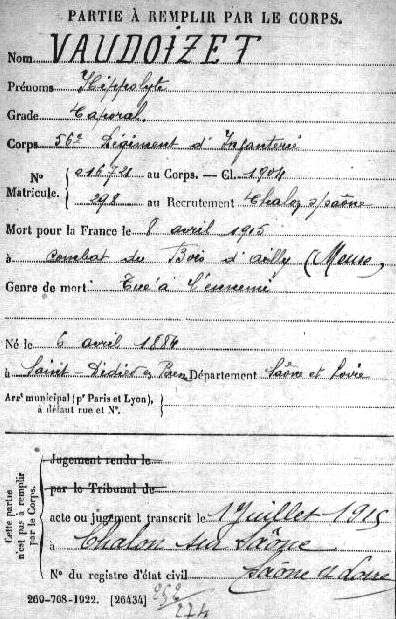 PARTIE À REMPLIR PAR LE CORPS.
Nom VAUDOIZET
Prénoms Hippolyte
Grade Caporal.
Corps 56e Régiment d'Infanterie
N° Matricule. { 016721 au Corps. — Cl. 1904
298 au Recrutement Chalon s/saône
Mort pour la France le 8 avril 1915
à combat du Bois d'ailly (Meuse)
Genre de mort Tué à l'ennemi
Né le 6 avril 1884
à Saint-Didier en Département Saône et Loire
Arrt municipal (pr Paris et Lyon), à défaut rue et N°. {
Cette partie n'est pas à remplir par le Corps.
Jugement rendu le
par le Tribunal de
acte ou jugement transcrit le 1 Juillet 1915
à Chalon sur Saône
N° du registre d'état civil Saône et Loire
269-708-1922. [26434]
274